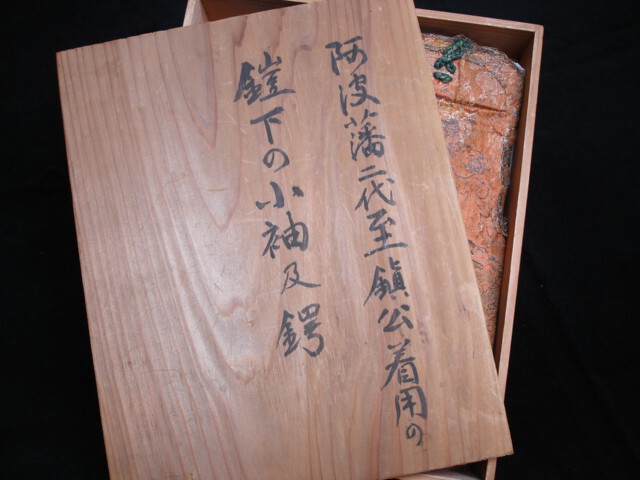 阿波藩二代至鎮公着用の
鎧下の小袖及鍔